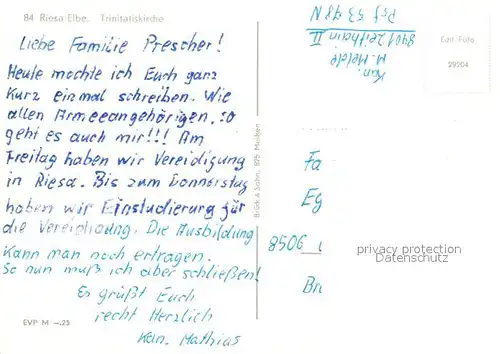 84 Riesa Elbe. Trinitatiskirche
Liebe Familie Prescher!
Heute möchte ich Euch ganz
kurz einmal schreiben. Wie
allen Armeeangehörigen, so
geht es auch mir!!! Am
Freitag haben wir Vereidigung
in Riesa. Bis zum Donnerstag
haben wir Einstudierung für
die Vereidigung. Die Ausbildung
kann man noch ertragen.
So nun muß ich aber schließen!
Es grüßt Euch
recht Herzlich
Kan. Mathias
EVP M –.25
Brück & Sohn, 825 Meißen
Kan.
M.
8401 Zeithain II
Psf 53 98 N
Edit - Foto
29204
Fa
Eg
8506
Br
privacy protection
Datenschutz